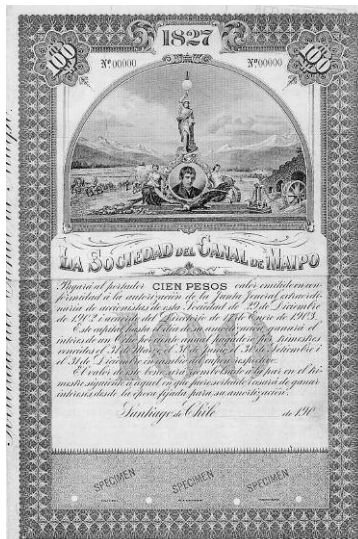 1827
100
100
Nº 00000
Nº 00000
LA SOCIEDAD DEL CANAL DE MAIPO
Pagará al portador CIEN PESOS valor emitido en con-
formidad á la autorizacion de la Junta Jeneral extraordi-
naria de accionistas de esta Sociedad de 29 de Diciembre
de 1902 i acuerdo del Directorio de 17 de Enero de 1903.
Este capital hasta el dia de su amortizacion ganará el
interes de un ocho por ciento anual pagadero por trimestres
vencidos el 31 de Marzo, el 30 de Junio, el 30 de Setiembre i
el 31 de Diciembre en cambio del cupon respectivo.
El valor de este bono será reembolsado a la par en el tri-
mestre siguiente a aquel en que fuere sorteado i cesará de ganar
intereses desde la época fijada para su amortizacion.
Santiago de Chile de 190
SPECIMEN SPECIMEN SPECIMEN